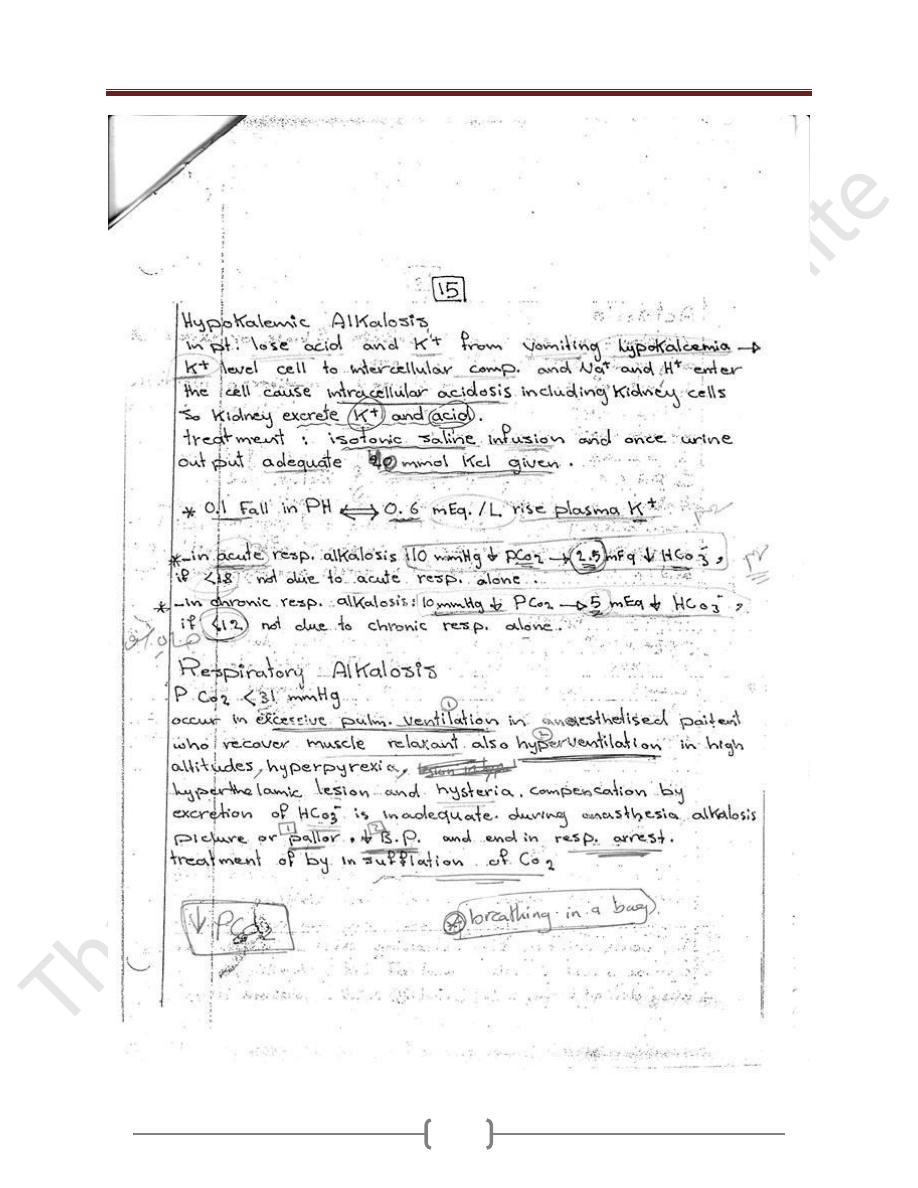 15
Hypokalemic Alkalosis
in pt. lose acid and K+ from vomiting hypokalcemia →
K+ level cell to intercellular comp. and Na+ and H+ enter
the cell cause intracellular acidosis including Kidney cells
so Kidney excrete K+ and acid.
treatment : isotonic saline infusion and once urine
out put adequate mmol Kcl given.
* 0.1 Fall in PH ⟺ 0.6 mEq./L rise plasma K+
* - in acute resp. alkalosis : 10 mmHg ↓ PCo2 → 2.5 mEq ↓ HCo3-,
if <18 not due to acute resp. alone.
* - in chronic resp. alkalosis: 10 mmHg ↓ PCo2 → 5 mEq ↓ HCo3-,
if <12 not due to chronic resp. alone.
Respiratory Alkalosis
P Co2 <31 mmHg
occur in excessive pulm. ventilation 1 in anaesthetised paitent
who recover muscle relaxant also hyperventilation 2 in high
altitudes, hyperpyrexia,
hyperthelamic lesion and hysteria. compencation by
excretion of HCo3- is inadequate. during anasthesia alkalosis
picture or 1 pallor . 2 ↓ B.P. and end in resp. arrest.
treatment of by insufflation of Co2
↓ PCo2
* breathing in a bag